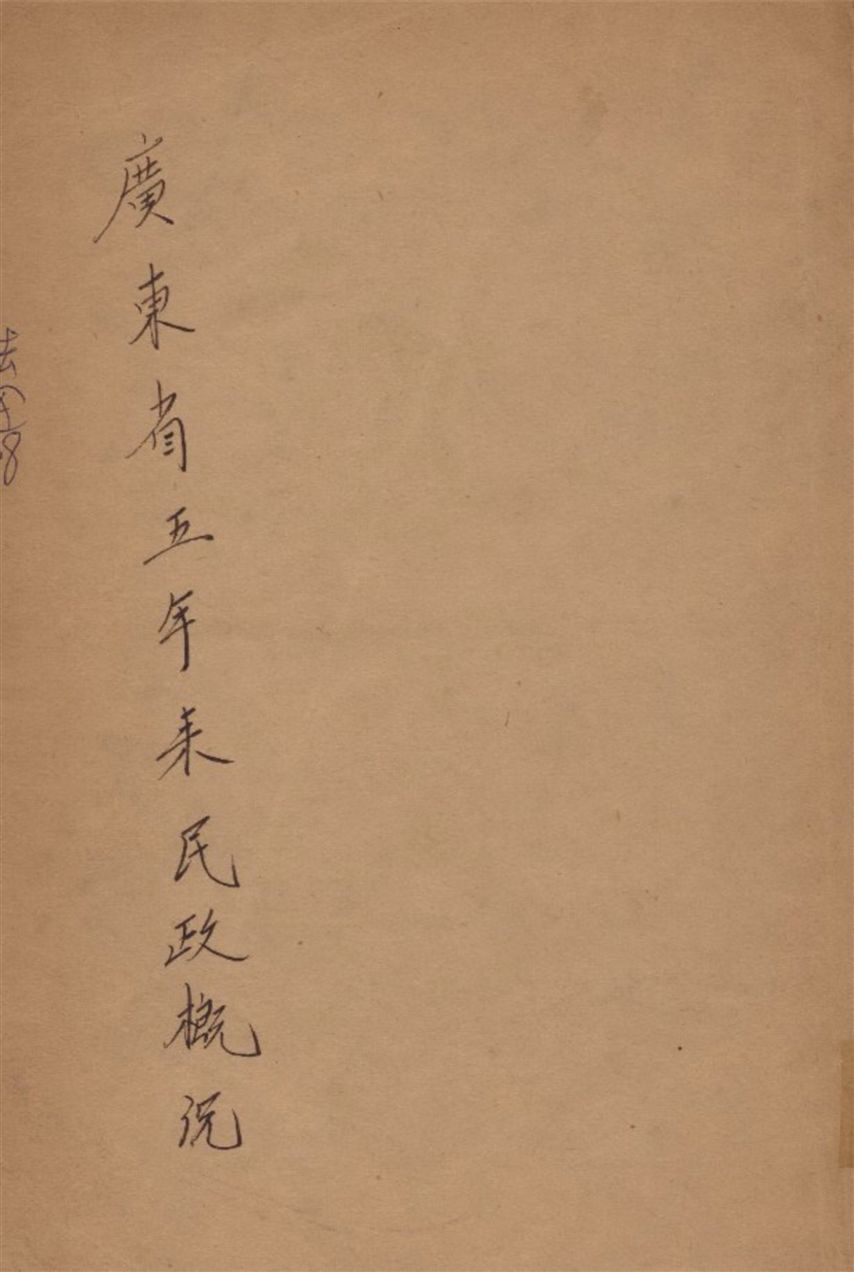 廣東省五年来民政概況